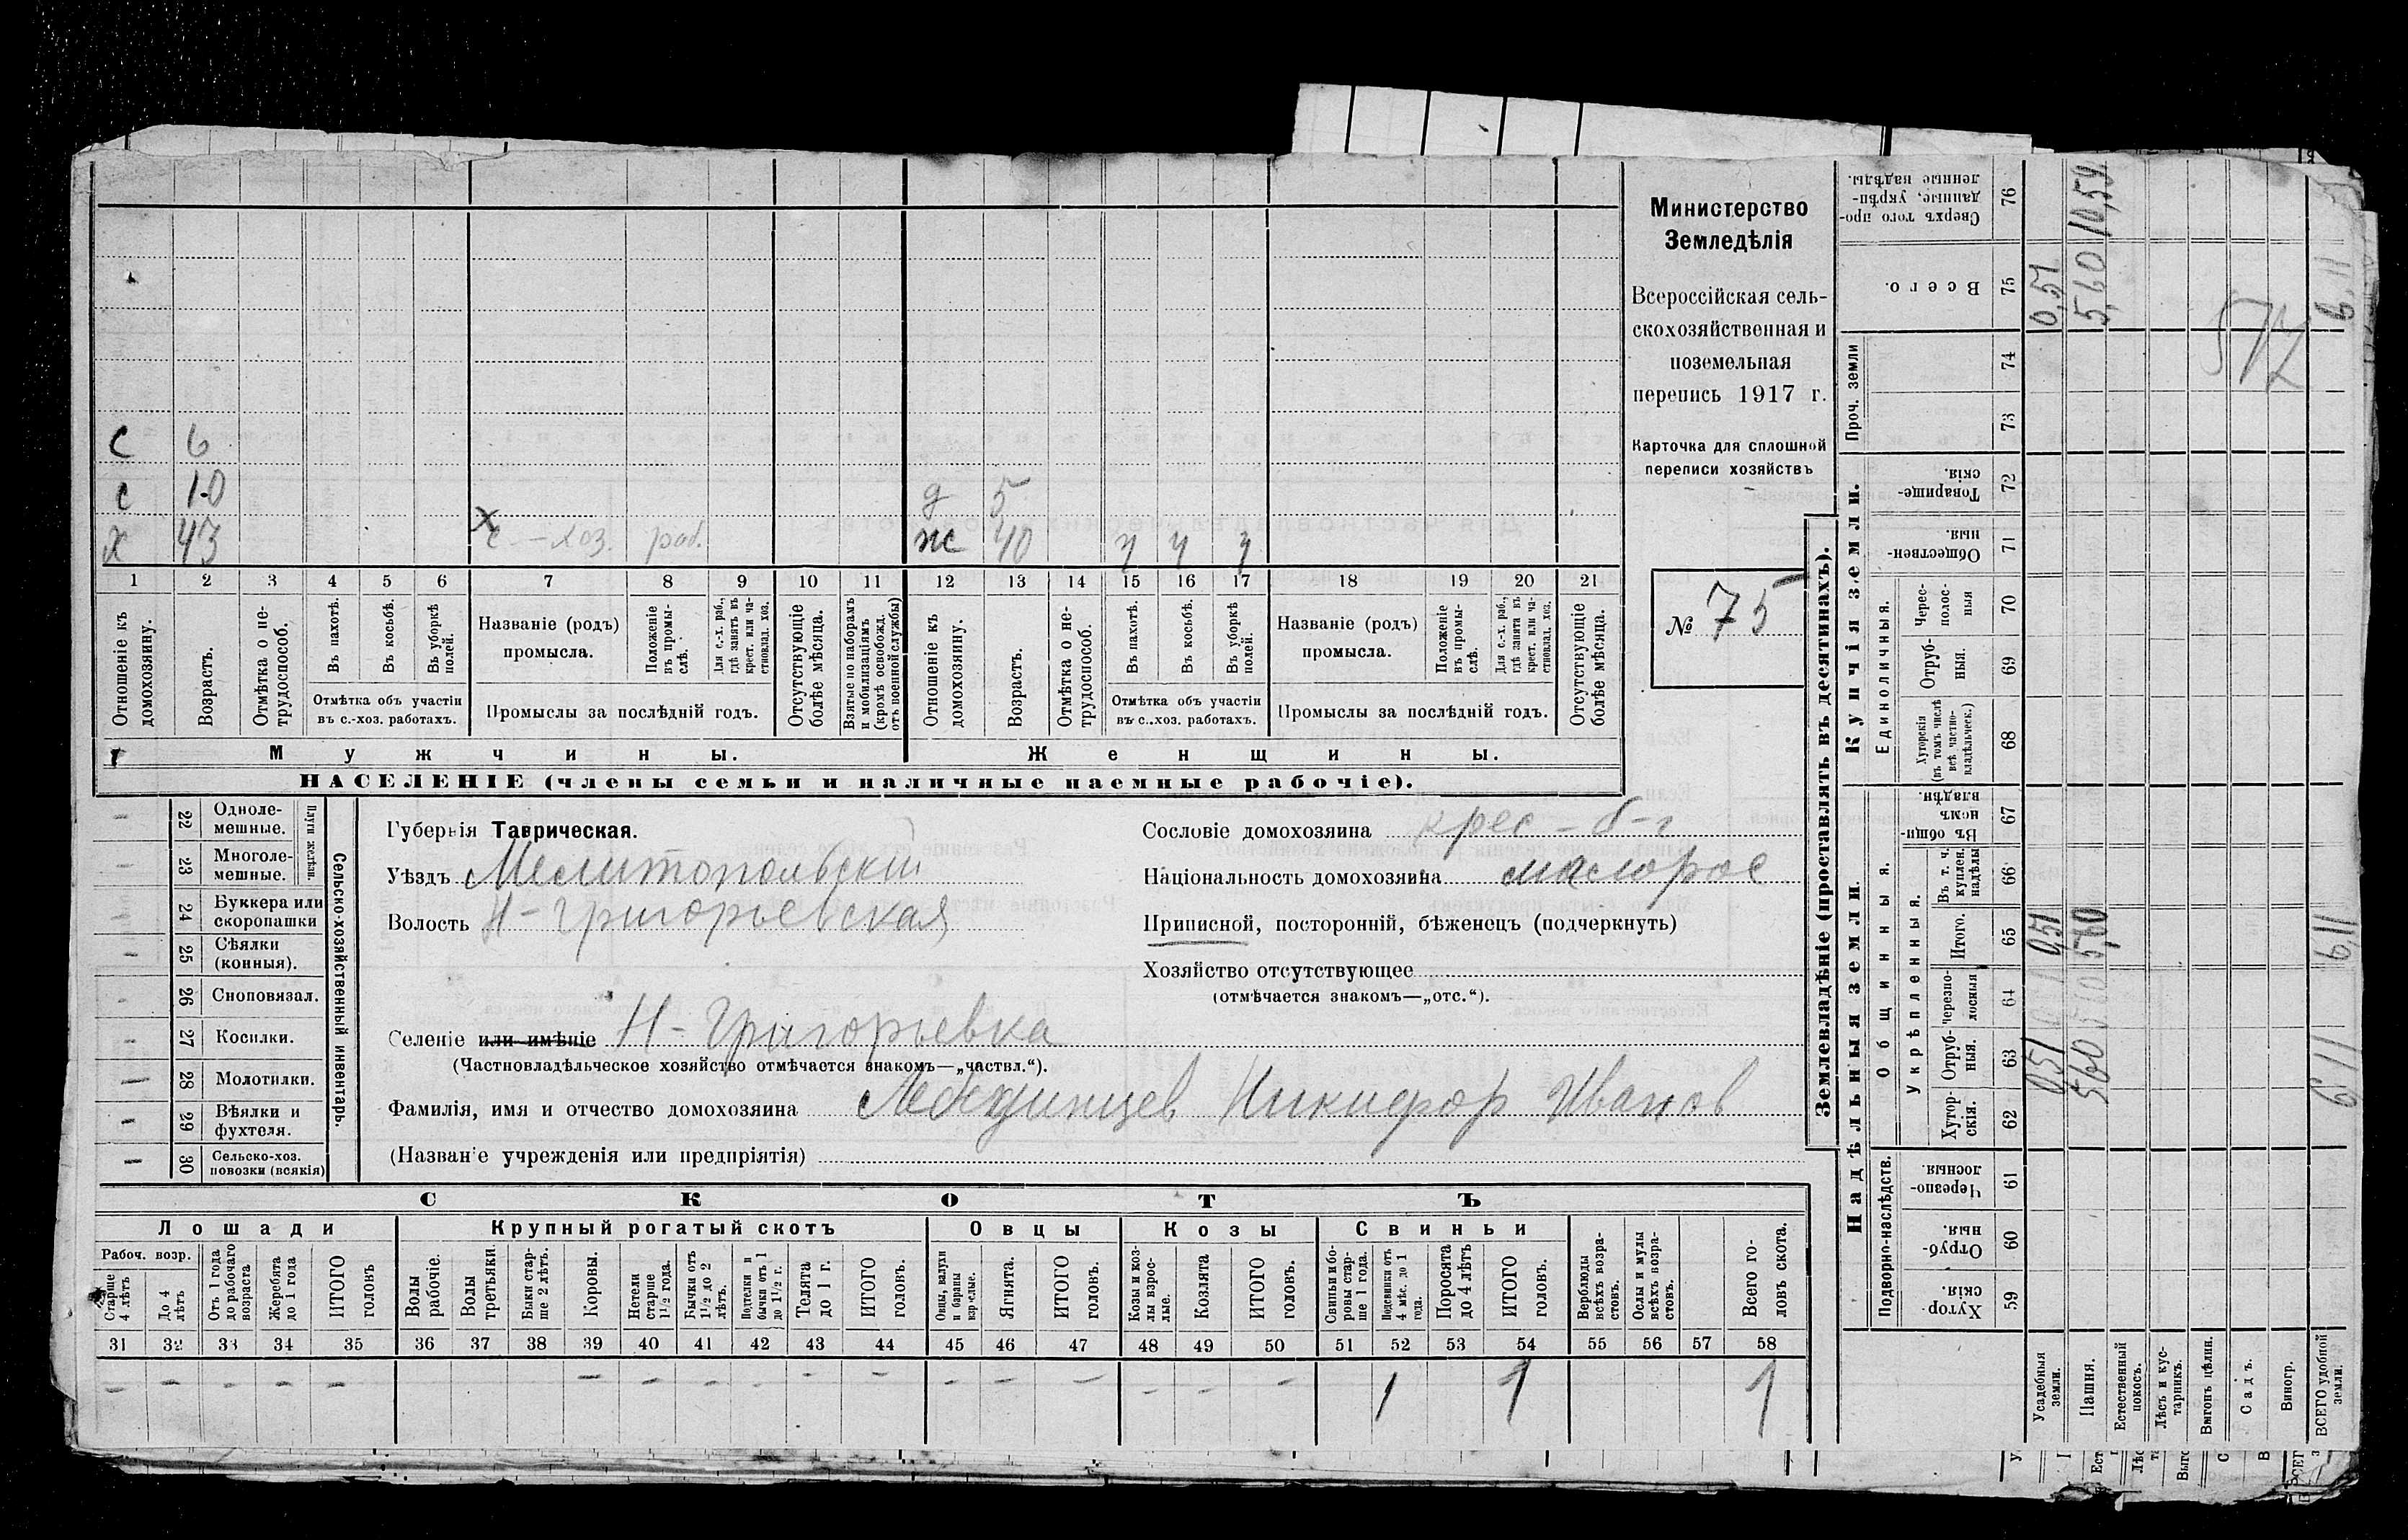 Министерство
Земледѣлія
Всероссійская сель-
скохозяйственная и
поземельная
перепись 1917 г.
Карточка для сплошной
переписи хозяйствъ
№ 75
с 6
с 10 д 5
х 43 с-хоз. раб. ж 40 у у у
1 2 3 4 5 6 7 8 9 10 11 12 13 14 15 16 17 18 19 20 21
Отношеніе къ домохозяину.
Возрастъ.
Отмѣтка о не-трудоспособ.
Въ пахотѣ.
Въ косьбѣ.
Въ уборкѣ полей.
Отмѣтка объ участіи въ с.-хоз. работахъ.
Названіе (родъ) промысла.
Положеніе въ промы-слѣ.
Для с.-х. раб., гдѣ занятъ въ крест. или ча-стновлад. хоз.
Промыслы за послѣдній годъ.
Отсутствующіе болѣе мѣсяца.
Взятые по наборамъ и мобилизаціямъ (кромѣ освобожд. отъ военной службы)
Отношеніе къ домохозяину.
Возрастъ.
Отмѣтка о не-трудоспособ.
Въ пахотѣ.
Въ косьбѣ.
Въ уборкѣ полей.
Отмѣтка объ участіи въ с.-хоз. работахъ.
Названіе (родъ) промысла.
Положеніе въ промы-слѣ.
Для с.-х. раб., гдѣ занята въ крест. или ча-стновлад. хоз.
Промыслы за послѣдній годъ.
Отсутствующіе болѣе мѣсяца.
Мужчины. Женщины.
НАСЕЛЕНІЕ (члены семьи и наличные наемные рабочіе).
22 Одноле-мешные.
23 Многоле-мешные.
Плуги желѣзн.
24 Буккера или скоропашки
25 Сѣялки (конныя).
26 Сноповязал.
27 Косилки.
28 Молотилки.
29 Вѣялки и фухтеля.
30 Сельско-хоз. повозки (всякія)
Сельско-хозяйственный инвентарь.
Губернія Таврическая.
Уѣздъ Мелитопольскій
Волость Н-Григорьевская
Селеніе или имѣніе Н-Григорьевка
(Частновладѣльческое хозяйство отмѣчается знакомъ—„частвл.“).
Фамилія, имя и отчество домохозяина Никифор Иванов
(Названіе учрежденія или предпріятія)
Сословіе домохозяина крес-
Національность домохозяина малорос
Приписной, посторонній, бѣженецъ (подчеркнуть)
Хозяйство отсутствующее
(отмѣчается знакомъ—„отс.“).
СКОТЪ
Лошади Крупный рогатый скотъ Овцы Козы Свиньи
Рабоч. возр.
Старше 4 лѣтъ
До 4 лѣтъ
Отъ 1 года до рабочаго возраста
Жеребята до 1 года
ИТОГО головъ
Волы рабочіе.
Волы третьяки.
Быки стар-ше 2 лѣтъ.
Коровы.
Нетели старше 1½ года.
Бычки отъ 1½ до 2 лѣтъ.
Подтелки и бычки отъ 1 до 1½ г.
Телята до 1 г.
ИТОГО головъ.
Овцы, валухи и бараны взрослые.
Ягнята.
ИТОГО головъ.
Козы и коз-лы взрос-лые.
Козлята
ИТОГО головъ.
Свиньи и бо-ровы стар-ше 1 года.
Подсвинки отъ 4 мѣс. до 1 года.
Поросята до 4 лѣтъ
ИТОГО головъ.
Верблюды всѣхъ возра-стовъ.
Ослы и мулы всѣхъ возра-стовъ.
Всего го-ловъ скота.
31 32 33 34 35 36 37 38 39 40 41 42 43 44 45 46 47 48 49 50 51 52 53 54 55 56 57 58
- - - - - - - - - - - - - - - - - 1 1 1
Землевладѣніе (проставлять въ десятинахъ).
Надѣльныя земли. Купчія земли. Проч. земли
Подворно-наслѣдств. Общинныя. Единоличныя.
Укрѣпленныя.
59 Хутор-скія.
60 Отруб-ныя.
61 Черезпо-лосныя.
62 Хутор-скія.
63 Отруб-ныя.
64 Черезпо-лосныя
65 Итого.
66 Въ т. ч. куплен. надѣлы
67 Въ общи-номъ владѣн.
68 Хуторскія (въ томъ числѣ всѣ частно-владѣльческ.)
69 Отруб-ныя.
70 Черес-полос-ныя
71 Обществен-ныя.
72 Товарище-скія.
73
74
75 Всего.
76 Сверхъ того про-данные, укрѣп-ленные надѣлы.
Усадебныя земли. 0,51 0,51 0,51
Пашня. 5,60 5,60 5,60 10,59
Естественный покосъ.
Лѣсъ и кус-тарникъ.
Выгонъ цѣлин.
Садъ.
Виногр.
ВСЕГО удобной земли. 6,11 6,11 6,11